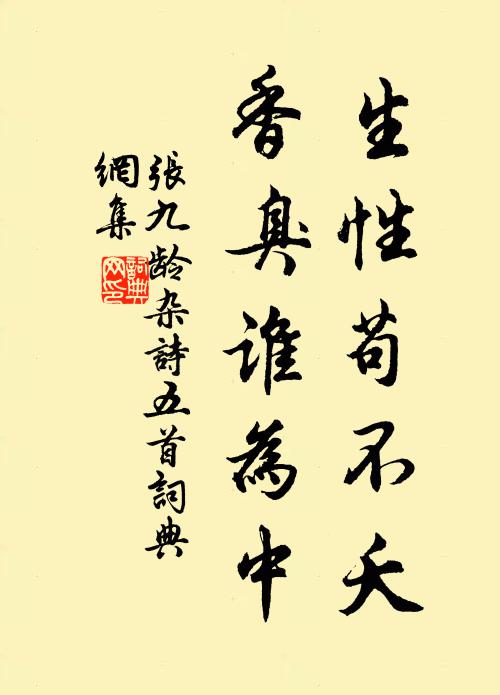 生性苟不夭
香臭誰為中
張九龄杂詩五首詞典
網集
詞典
网印